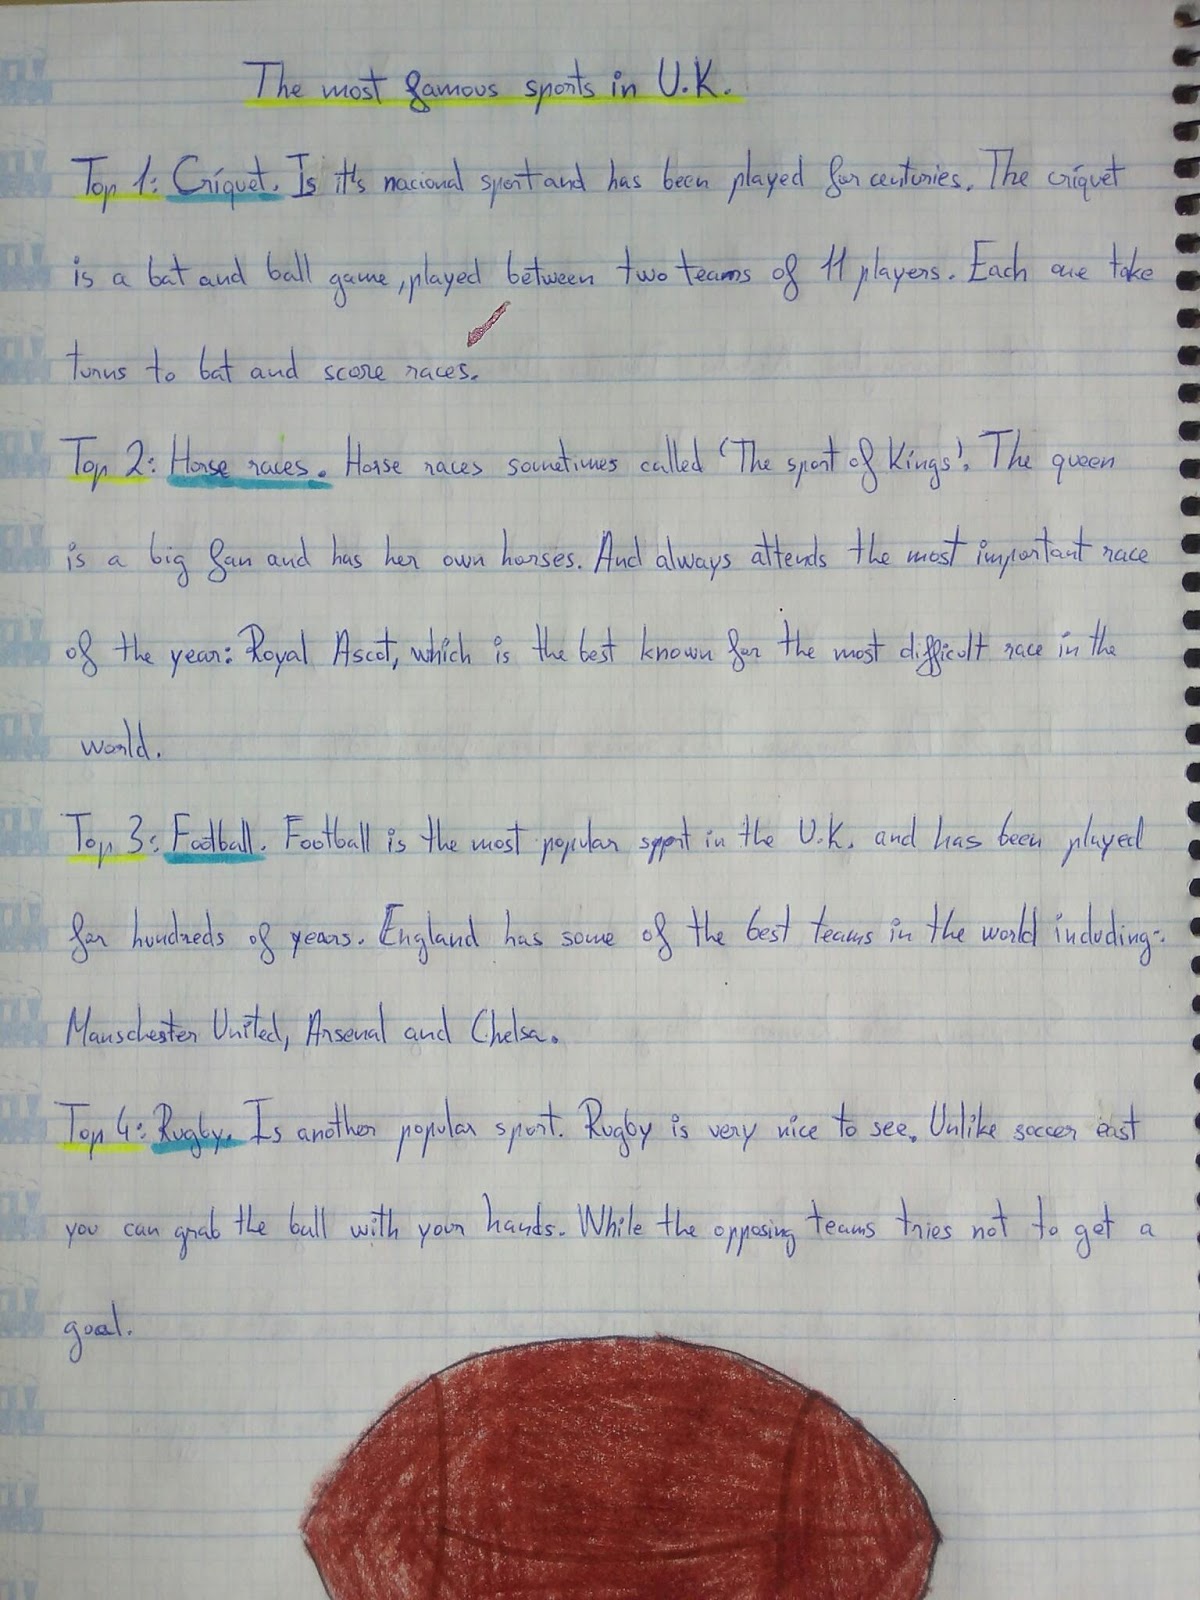 The most famous sports in U.K.
Top 1: Críquet. Is it's nacional sport and has been played for centuries. The críquet
is a bat and ball game, played between two teams of 11 players. Each one take
turns to bat and score races.
Top 2: Horse races. Horse races sometimes called 'The sport of Kings'. The queen
is a big fan and has her own horses. And always attends the most important race
of the year: Royal Ascot, which is the best known for the most difficult race in the
world.
Top 3: Football. Football is the most popular sport in the U.K. and has been played
for hundreds of years. England has some of the best teams in the world including:
Manschester United, Arsenal and Chelsa.
Top 4: Rugby. Is another popular sport. Rugby is very nice to see. Unlike soccer east
you can grab the ball with your hands. While the opposing teams tries not to get a
goal.